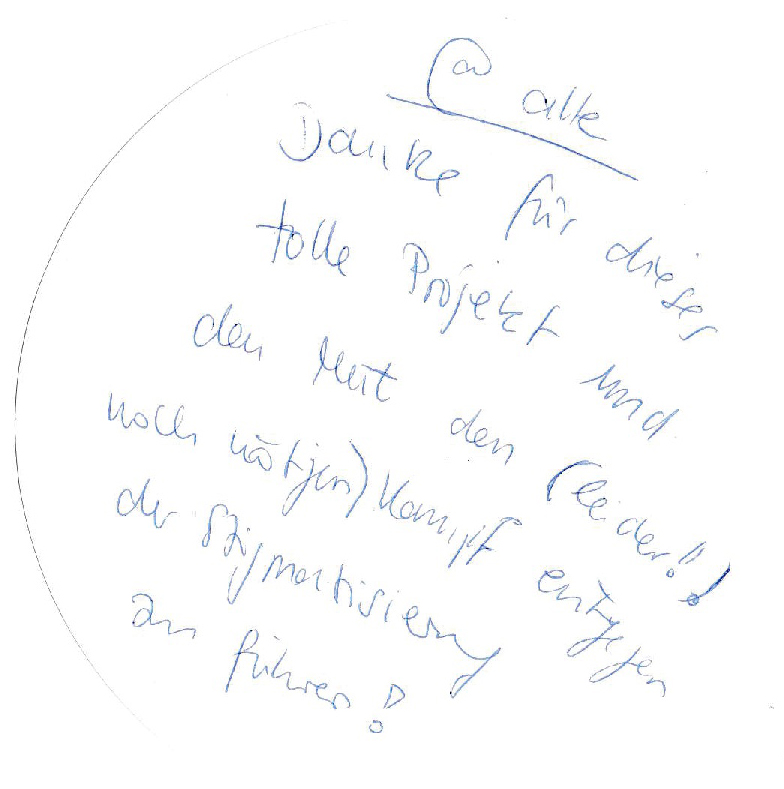 @ alle
Danke für dieses
tolle Projekt und
den Mut den (leider!!!
noch nötigen) Kampf entgegen
der Stigmatisierung
zu führen!